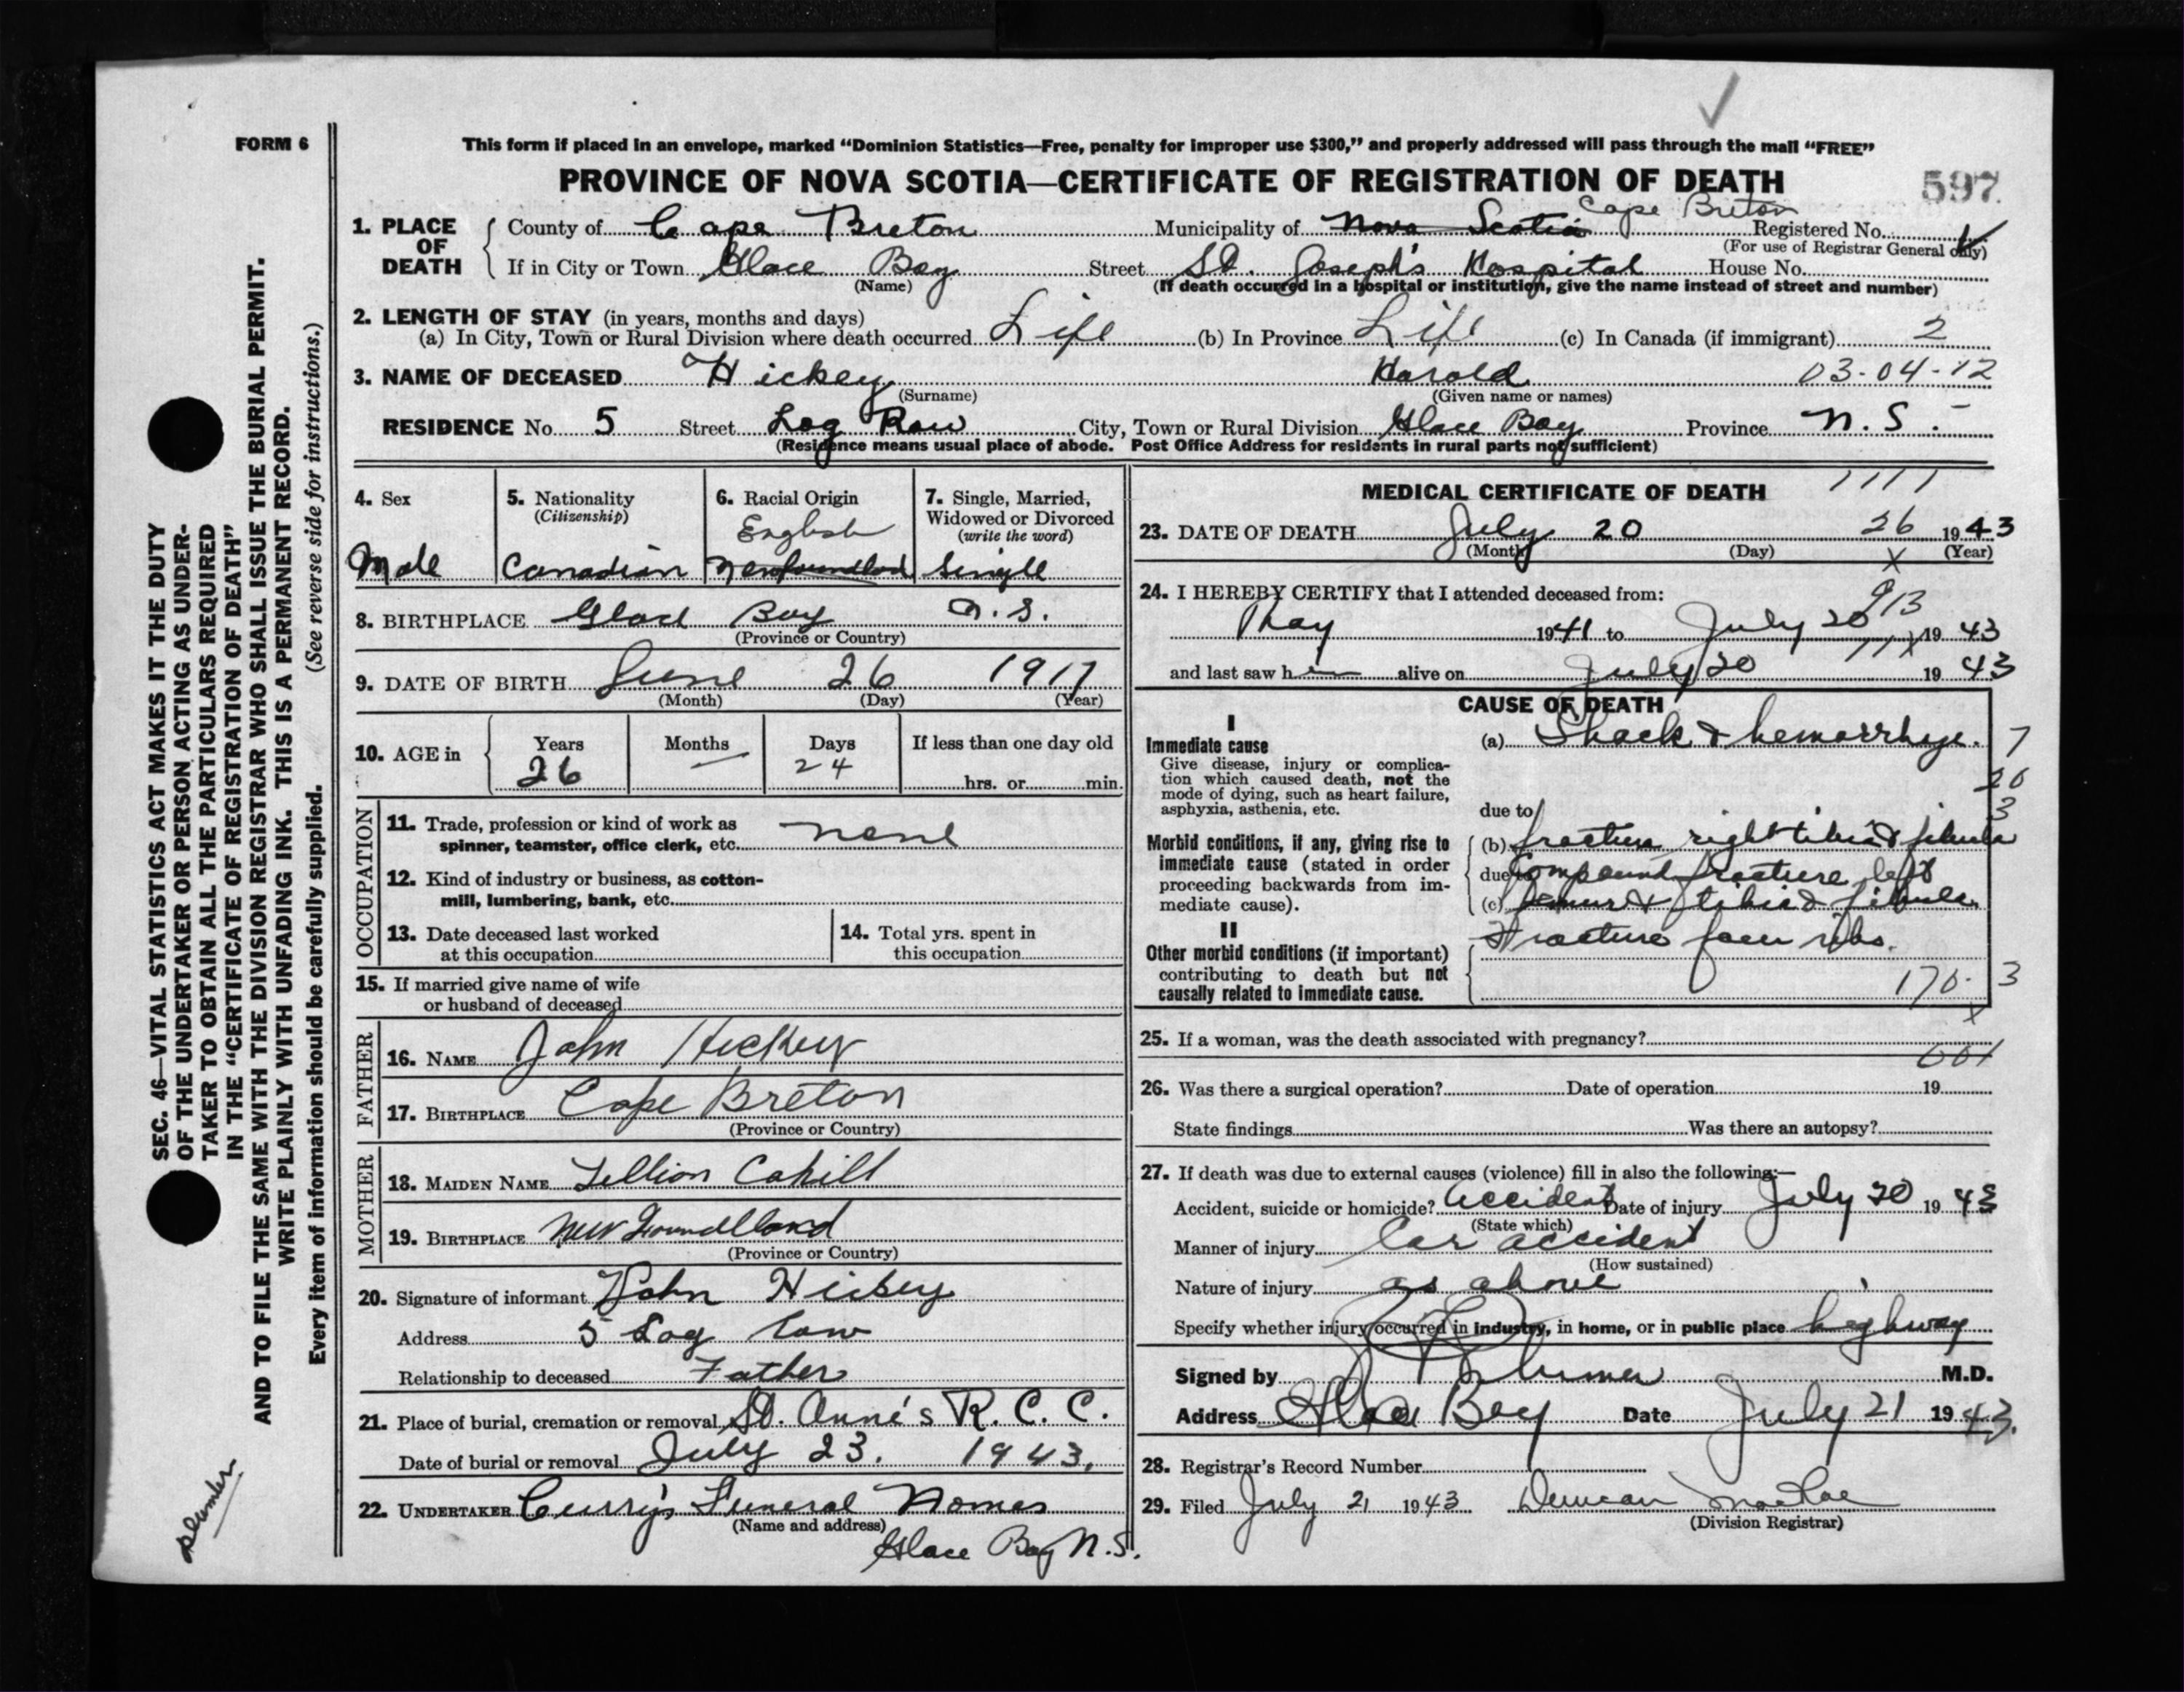 FORM 6
This form if placed in an envelope, marked “Dominion Statistics—Free, penalty for improper use $300,” and properly addressed will pass through the mail “FREE”
PROVINCE OF NOVA SCOTIA—CERTIFICATE OF REGISTRATION OF DEATH
597
1. PLACE OF DEATH
County of Cape Breton Municipality of Nova Scotia Cape Breton Registered No.
(For use of Registrar General only)
If in City or Town Glace Bay Street St. Joseph's Hospital House No.
(Name) (If death occurred in a hospital or institution, give the name instead of street and number)
2. LENGTH OF STAY (in years, months and days)
(a) In City, Town or Rural Division where death occurred Life (b) In Province Life (c) In Canada (if immigrant) 2
3. NAME OF DECEASED Hickey Harold 03-04-12
(Surname) (Given name or names)
RESIDENCE No. 5 Street Log Row City, Town or Rural Division Glace Bay Province N. S.
(Residence means usual place of abode. Post Office Address for residents in rural parts not sufficient)
4. Sex
Male
5. Nationality
(Citizenship)
Canadian
6. Racial Origin
English
Newfoundland
7. Single, Married, Widowed or Divorced
(write the word)
Single
8. BIRTHPLACE Glace Bay N. S.
(Province or Country)
9. DATE OF BIRTH June 26 1917
(Month) (Day) (Year)
10. AGE in Years Months Days If less than one day old
26 — 24 hrs. or min.
OCCUPATION
11. Trade, profession or kind of work as
spinner, teamster, office clerk, etc. none
12. Kind of industry or business, as cotton-
mill, lumbering, bank, etc.
13. Date deceased last worked
at this occupation
14. Total yrs. spent in
this occupation
15. If married give name of wife
or husband of deceased
FATHER
16. NAME John Hickey
17. BIRTHPLACE Cape Breton
(Province or Country)
MOTHER
18. MAIDEN NAME Lillion Cahill
19. BIRTHPLACE New Foundland
(Province or Country)
20. Signature of informant John Hickey
Address 5 Log Row
Relationship to deceased Father
21. Place of burial, cremation or removal St. Anne's R. C. C.
Date of burial or removal July 23, 1943.
22. UNDERTAKER Curry's Funeral Homes
(Name and address)
Glace Bay N.S.
MEDICAL CERTIFICATE OF DEATH
1111
23. DATE OF DEATH July 20 26 1943
(Month) (Day) (Year)
x
24. I HEREBY CERTIFY that I attended deceased from:
913
May 1941 to July 20 1943
11x
and last saw him alive on July 20 1943
CAUSE OF DEATH
I
Immediate cause
Give disease, injury or complica-
tion which caused death, not the
mode of dying, such as heart failure,
asphyxia, asthenia, etc.
(a) Shock & hemorrhage.
7
20
3
due to
Morbid conditions, if any, giving rise to
immediate cause (stated in order
proceeding backwards from im-
mediate cause).
(b) fracture right tibia & fibula
due to Compound fracture left
(c) femur & tibia & fibula
II
Other morbid conditions (if important)
contributing to death but not
causally related to immediate cause.
Fracture four ribs.
170. 3
x
25. If a woman, was the death associated with pregnancy?
001
26. Was there a surgical operation? Date of operation 19
State findings Was there an autopsy?
27. If death was due to external causes (violence) fill in also the following:—
Accident, suicide or homicide? accident Date of injury July 20 1943
(State which)
Manner of injury Car accident
(How sustained)
Nature of injury as above
Specify whether injury occurred in industry, in home, or in public place highway
Signed by M.D.
Address Glace Bay Date July 21 1943.
28. Registrar's Record Number
29. Filed July 21 1943 Duncan MacRae
(Division Registrar)
SEC. 46—VITAL STATISTICS ACT MAKES IT THE DUTY
OF THE UNDERTAKER OR PERSON ACTING AS UNDER-
TAKER TO OBTAIN ALL THE PARTICULARS REQUIRED
IN THE “CERTIFICATE OF REGISTRATION OF DEATH”
AND TO FILE THE SAME WITH THE DIVISION REGISTRAR WHO SHALL ISSUE THE BURIAL PERMIT.
WRITE PLAINLY WITH UNFADING INK. THIS IS A PERMANENT RECORD.
Every item of information should be carefully supplied. (See reverse side for instructions.)